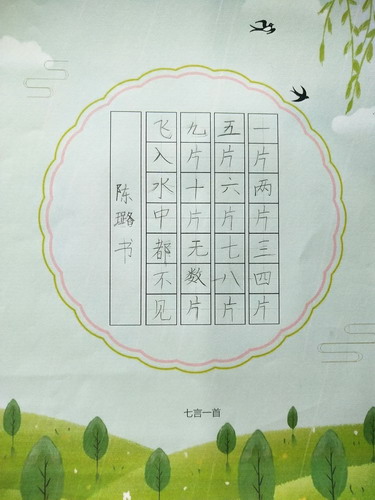 一片两片三四片
五片六片七八片
九片十片无数片
飞入水中都不见
陈璐书
七言一首